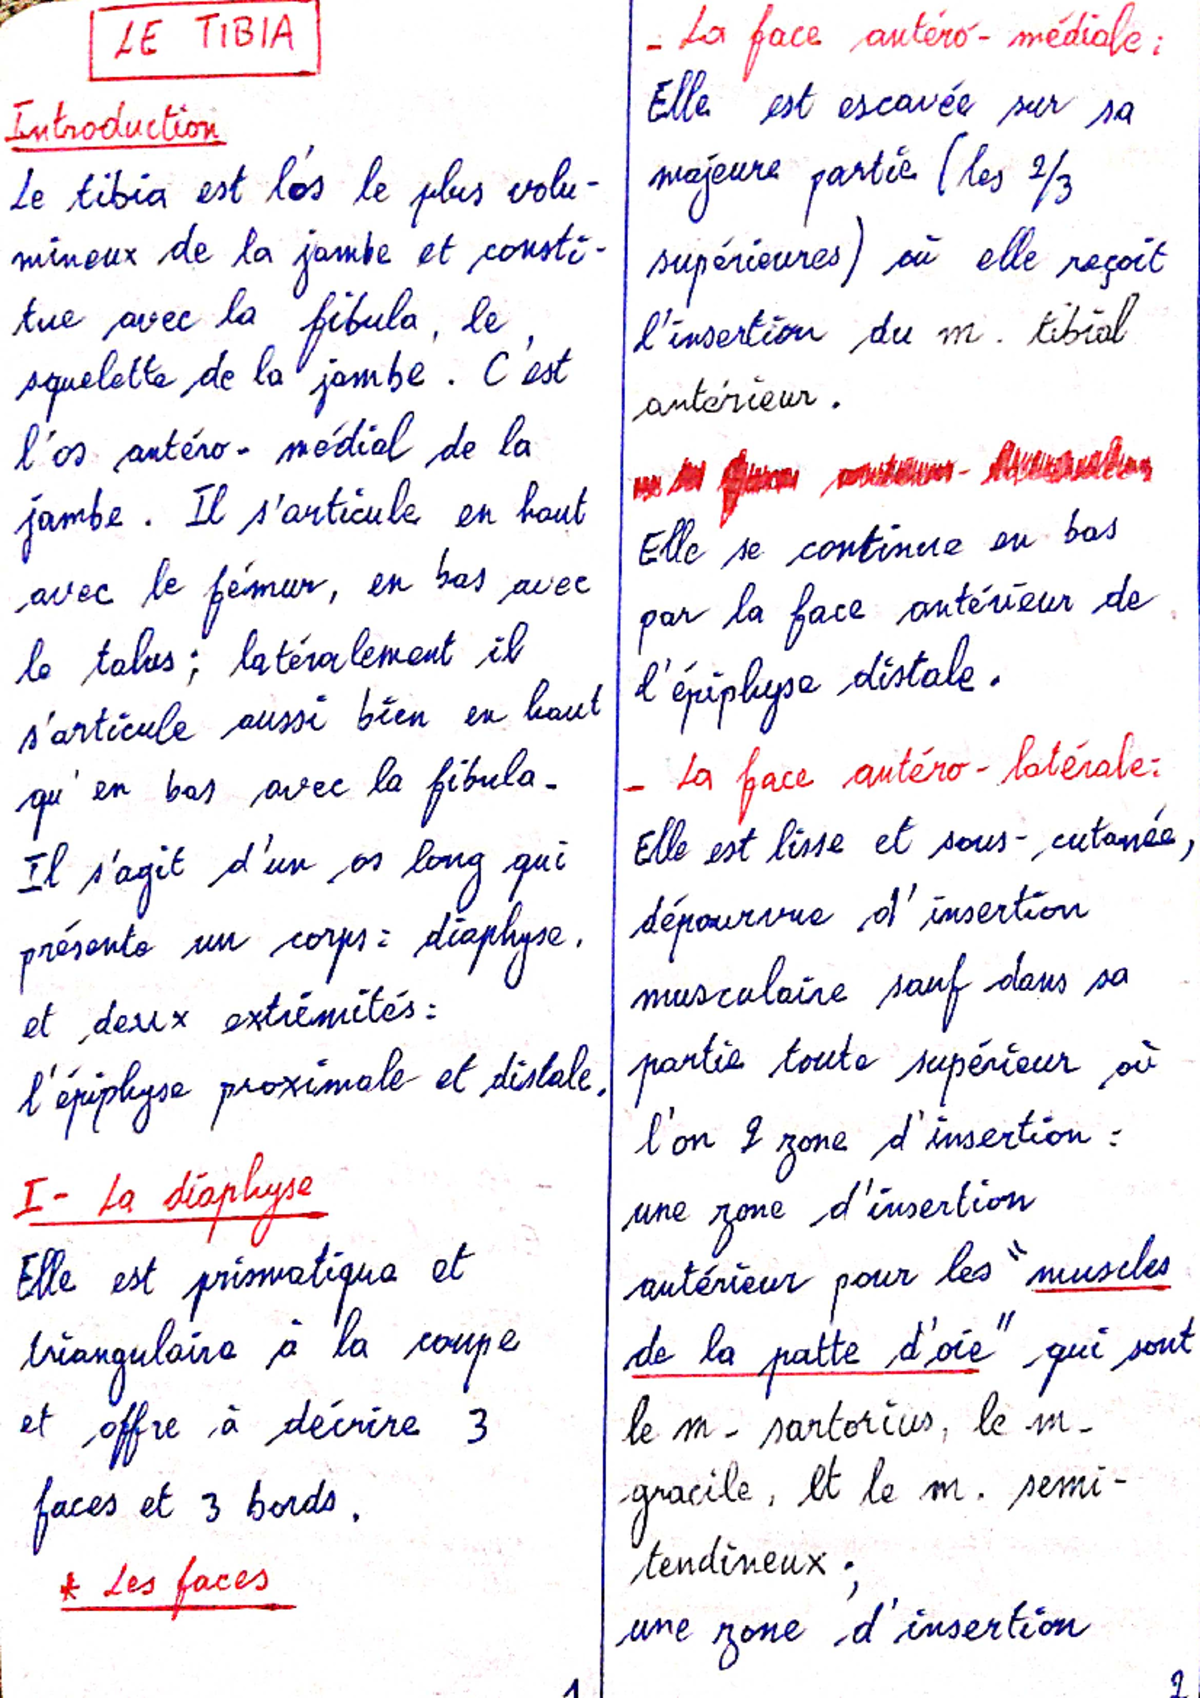 LE TIBIA
Introduction
Le tibia est l'os le plus volu-
mineux de la jambe et consti-
tue avec la fibula, le
squelette de la jambe. C'est
l'os antéro-médial de la
jambe. Il s'articule en haut
avec le fémur, en bas avec
le talus; latéralement il
s'articule aussi bien en haut
qu'en bas avec la fibula.
Il s'agit d'un os long qui
présente un corps: diaphyse.
et deux extrémités:
l'épiphyse proximale et distale.
I- La diaphyse
Elle est prismatique et
triangulaire à la coupe
et offre à décrire 3
faces et 3 bords.
* Les faces
1
- La face antéro-médiale:
Elle est escavée sur sa
majeure partie (les 2/3
supérieures) où elle reçoit
l'insertion du m. tibial
antérieur.
Elle se continue en bas
par la face antérieur de
l'épiphyse distale.
- La face antéro-latérale:
Elle est lisse et sous-cutanée,
dépourvue d'insertion
musculaire sauf dans sa
partie toute supérieur où
l'on 2 zone d'insertion:
une zone d'insertion
antérieur pour les "muscles
de la patte d'oie" qui sont
le m. sartorius, le m.
gracile, et le m. semi-
tendineux;
une zone d'insertion
2